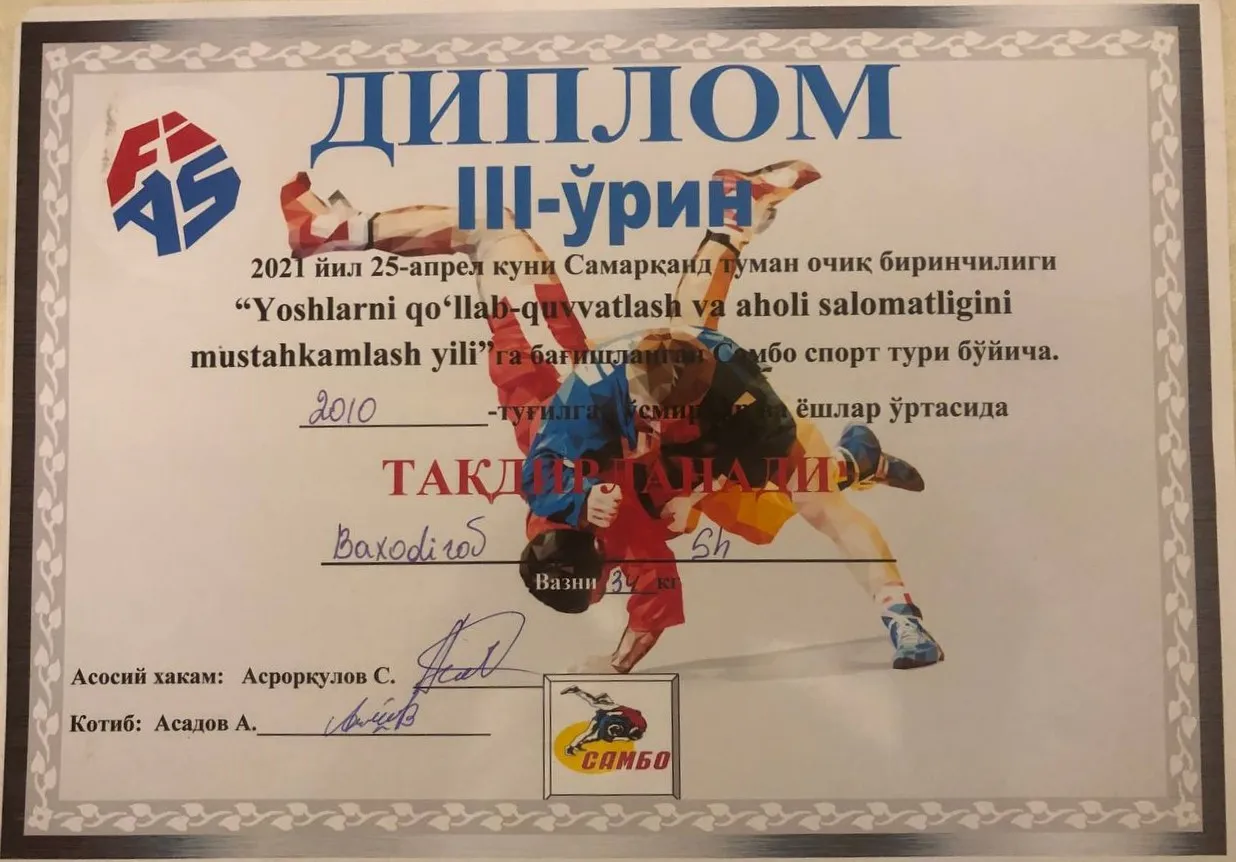 ДИПЛОМ
FIAS
III-ўрин
2021 йил 25-апрел куни Самарқанд туман очиқ биринчилиги
“Yoshlarni qo‘llab-quvvatlash va aholi salomatligini
mustahkamlash yili”га бағишланган Самбо спорт тури бўйича.
2010 -туғилган ўсмирлар ва ёшлар ўртасида
ТАҚДИРЛАНАДИ
Sh
Вазни 34 кг
Асосий хакам: Асрорқулов С.
Котиб: Асадов А.
САМБО